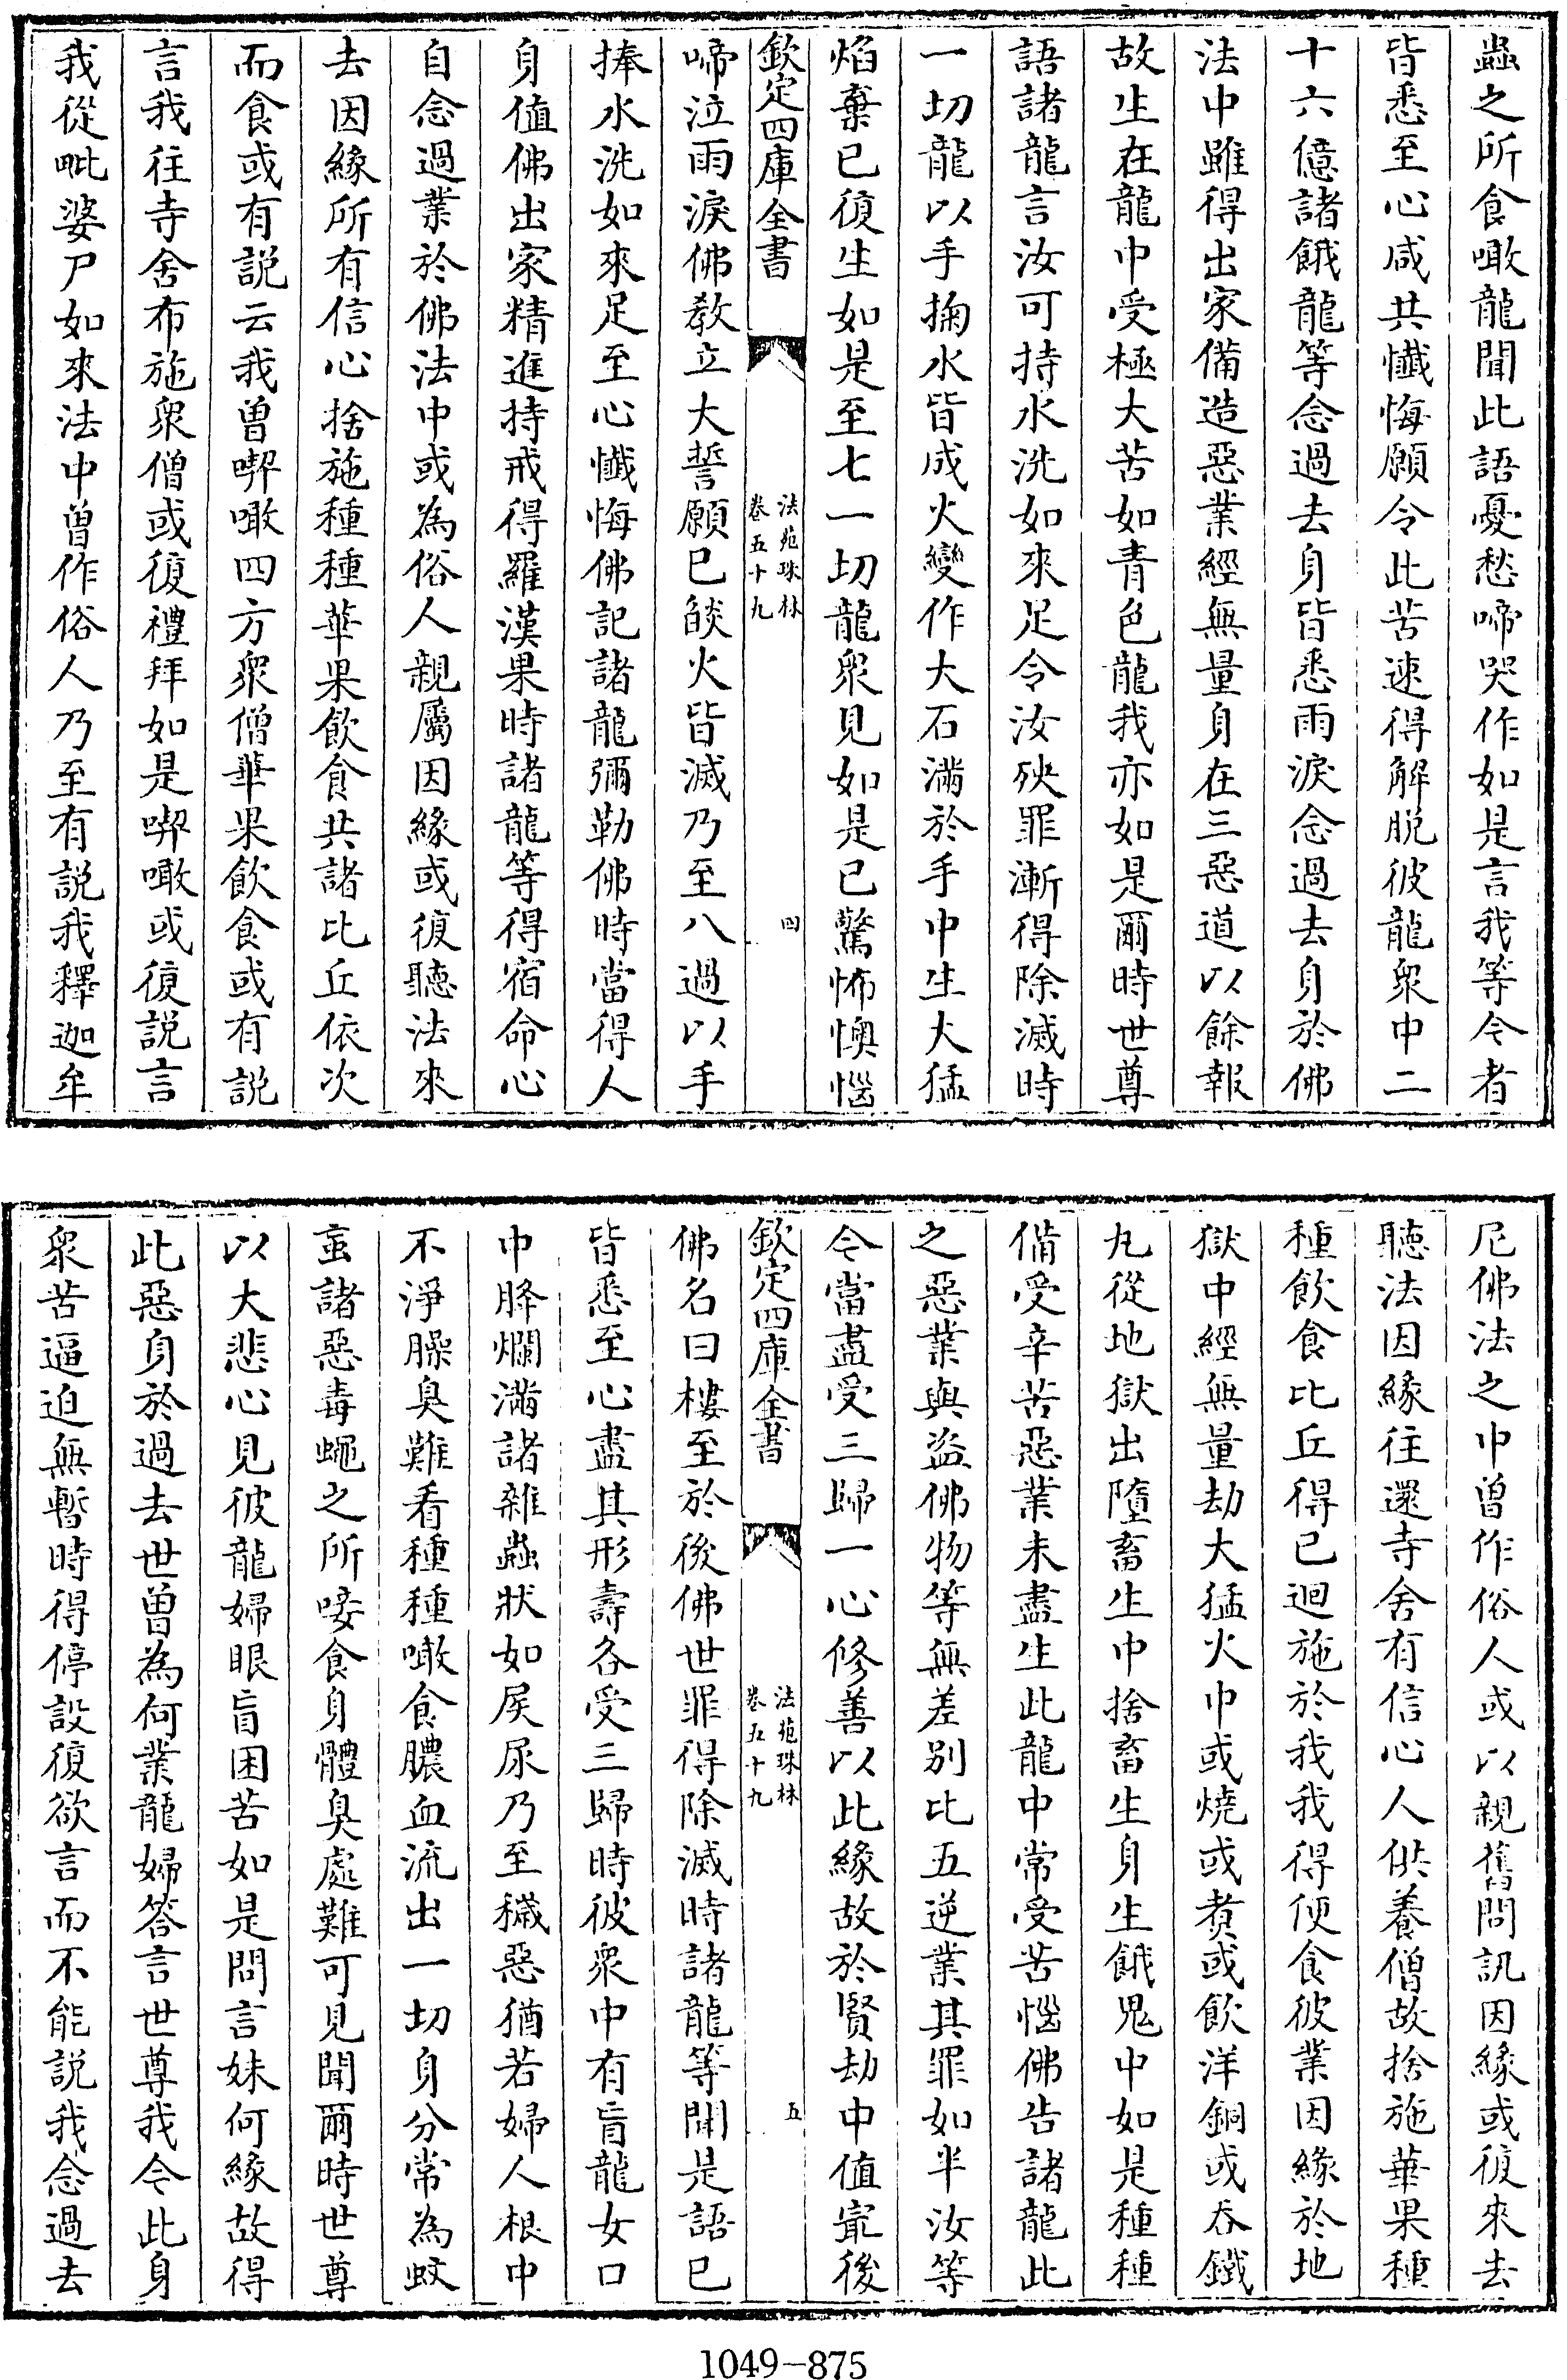 蟲之所食噉龍聞此語憂愁啼哭作如是言我等今者
皆悉至心咸共懺悔願令此苦速得解脱彼龍衆中二
十六億諸餓龍等念過去身皆悉雨淚念過去身於佛
法中雖得出家備造惡業經無量身在三惡道以餘報
故生在龍中受極大苦如青色龍我亦如是爾時世尊
語諸龍言汝可持水洗如來足令汝殃罪漸得除滅時
一切龍以手掬水皆成火變作大石滿於手中生大猛
焰棄已復生如是至七一切龍衆見如是已驚怖懊惱
欽定四庫全書
法苑珠林
卷五十九
四
啼泣雨淚佛教立大誓願已燄火皆滅乃至八過以手
捧水洗如來足至心懺悔佛記諸龍彌勒佛時當得人
身值佛出家精進持戒得羅漢果時諸龍等得宿命心
自念過業於佛法中或為俗人親屬因緣或復聽法來
去因緣所有信心捨施種種華果飲食共諸比丘依次
而食或有説云我曾喫噉四方衆僧華果飲食或有説
言我往寺舍布施衆僧或復禮拜如是喫噉或復説言
我從毗婆尸如來法中曾作俗人乃至有説我釋迦牟
尼佛法之中曾作俗人或以親舊問訊因緣或復來去
聽法因緣往還寺舍有信心人供養僧故捨施華果種
種飲食比丘得已迴施於我我得便食彼業因緣於地
獄中經無量劫大猛火中或燒或煑或飲洋銅或吞鐵
丸從地獄出墮畜生中捨畜生身生餓鬼中如是種種
備受辛苦惡業未盡生此龍中常受苦惱佛告諸龍此
之惡業與盜佛物等無差别比五逆業其罪如半汝等
今當盡受三歸一心修善以此緣故於賢劫中值㝡後
欽定四庫全書
法苑珠林
卷五十九
五
佛名曰樓至於後佛世罪得除滅時諸龍等聞是語已
皆悉至心盡其形壽各受三歸時彼衆中有盲龍女口
中胮爛滿諸雜蟲狀如屎尿乃至穢惡猶若婦人根中
不淨臊臭難看種種噉食膿血流出一切身分常為蚊
䖟諸惡毒蠅之所唼食身體臭處難可見聞爾時世尊
以大悲心見彼龍婦眼盲困苦如是問言妹何緣故得
此惡身於過去世曾為何業龍婦答言世尊我今此身
衆苦逼迫無暫時得停設復欲言而不能説我念過去
1049-875